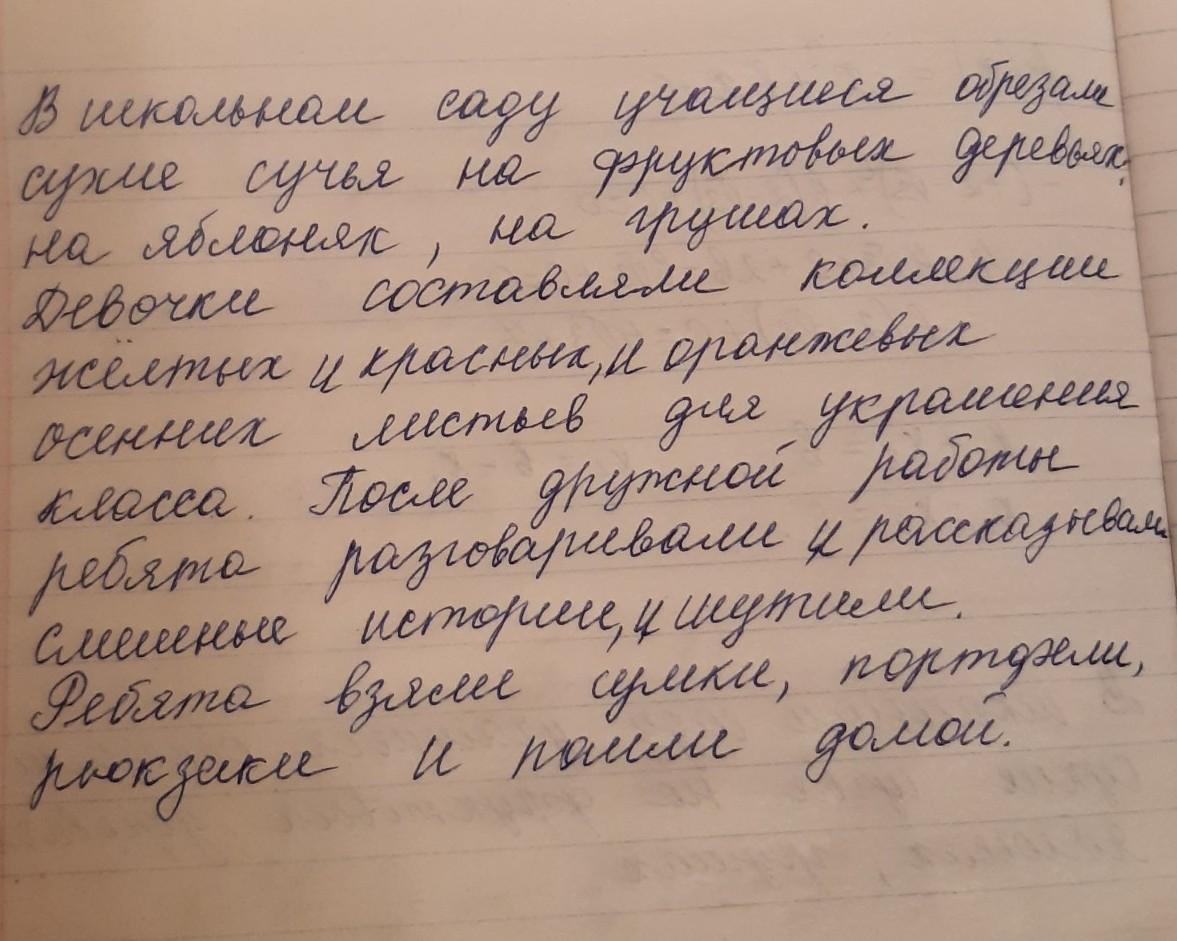 В школьном саду учащиеся обрезали
сухие сучья на фруктовых деревьях:
на яблонях, на грушах.
Девочки составляли коллекции
жёлтых и красных, и оранжевых
осенних листьев для украшения
класса. После дружной работы
ребята разговаривали и рассказывали
смешные истории, и шутили.
Ребята взяли сумки, портфели,
рюкзаки и пошли домой.